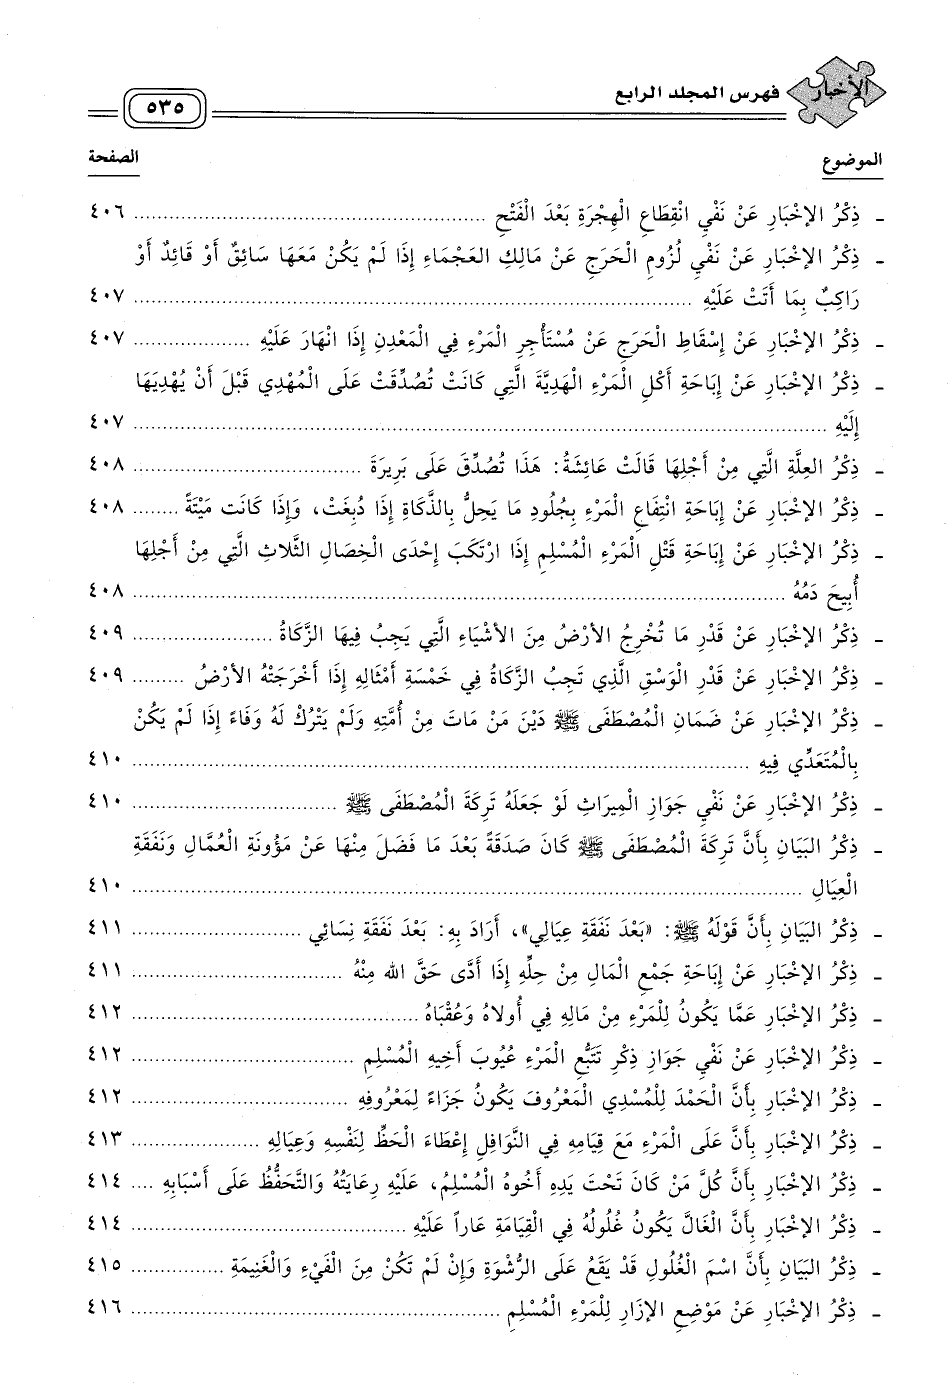 الأخبار فهرس المجلد الرابع ٥٣٥
الموضوع الصفحة
- ذِكْرُ الإخْبَارِ عَنْ نَفْيِ انْقِطَاعِ الْهِجْرَةِ بَعْدَ الْفَتْحِ ..... ٤٠٦
- ذِكْرُ الإخْبَارِ عَنْ نَفْيِ لُزُومِ الْحَرَجِ عَنْ مَالِكِ العَجْمَاءِ إِذَا لَمْ يَكُنْ مَعَهَا سَائِقٌ أَوْ قَائِدٌ أَوْ
رَاكِبٌ بِمَا أَتَتْ عَلَيْهِ ..... ٤٠٧
- ذِكْرُ الإخْبَارِ عَنْ إِسْقَاطِ الْحَرَجِ عَنْ مُسْتَأْجِرِ الْمَرْءِ فِي الْمَعْدِنِ إِذَا انْهَارَ عَلَيْهِ ..... ٤٠٧
- ذِكْرُ الإخْبَارِ عَنْ إِبَاحَةِ أَكْلِ الْمَرْءِ الْهَدِيَّةَ الَّتِي كَانَتْ تُصُدِّقَتْ عَلَى الْمُهْدِي قَبْلَ أَنْ يُهْدِيَهَا
إِلَيْهِ ..... ٤٠٧
- ذِكْرُ العِلَّةِ الَّتِي مِنْ أَجْلِهَا قَالَتْ عَائِشَةُ: هَذَا تُصُدِّقَ عَلَى بَرِيرَةَ ..... ٤٠٨
- ذِكْرُ الإخْبَارِ عَنْ إِبَاحَةِ انْتِفَاعِ الْمَرْءِ بِجُلُودِ مَا يَحِلُّ بِالذَّكَاةِ إِذَا دُبِغَتْ، وَإِذَا كَانَت مَيْتَةً ..... ٤٠٨
- ذِكْرُ الإخْبَارِ عَنْ إِبَاحَةِ قَتْلِ الْمَرْءِ الْمُسْلِمِ إِذَا ارْتَكَبَ إِحْدَى الْخِصَالِ الثَّلَاثِ الَّتِي مِنْ أَجْلِهَا
أُبِيحَ دَمُهُ ..... ٤٠٨
- ذِكْرُ الإخْبَارِ عَنْ قَدْرِ مَا تُخْرِجُ الأرْضُ مِنَ الأشْيَاءِ الَّتِي يَجِبُ فِيهَا الزَّكَاةُ ..... ٤٠٩
- ذِكْرُ الإخْبَارِ عَنْ قَدْرِ الْوَسْقِ الَّذِي تَجِبُ الزَّكَاةُ فِي خَمْسَةِ أَمْثَالِهِ إِذَا أَخْرَجَتْهُ الأرْضُ ..... ٤٠٩
- ذِكْرُ الإخْبَارِ عَنْ ضَمَانِ الْمُصْطَفَى ﷺ دَيْنَ مَنْ مَاتَ مِنْ أُمَّتِهِ وَلَمْ يَتْرُكْ لَهُ وَفَاءً إِذَا لَمْ يَكُنْ
بِالْمُتَعَدِّي فِيهِ ..... ٤١٠
- ذِكْرُ الإخْبَارِ عَنْ نَفْيِ جَوَازِ الْمِيرَاثِ لَوْ جَعَلَهُ تَرِكَةَ الْمُصْطَفَى ﷺ ..... ٤١٠
- ذِكْرُ البَيَانِ بِأَنَّ تَرِكَةَ الْمُصْطَفَى ﷺ كَانَ صَدَقَةً بَعْدَ مَا فَضَلَ مِنْهَا عَنْ مَؤُونَةِ الْعُمَّالِ وَنَفَقَةِ
الْعِيَالِ ..... ٤١٠
- ذِكْرُ البَيَانِ بِأَنَّ قَوْلَهُ ﷺ: «بَعْدَ نَفَقَةِ عِيَالِي»، أَرَادَ بِهِ: بَعْدَ نَفَقَةِ نِسَائِي ..... ٤١١
- ذِكْرُ الإخْبَارِ عَنْ إِبَاحَةِ جَمْعِ الْمَالِ مِنْ حِلِّهِ إِذَا أَدَّى حَقَّ الله مِنْهُ ..... ٤١١
- ذِكْرُ الإخْبَارِ عَمَّا يَكُونُ لِلْمَرْءِ مِنْ مَالِهِ فِي أُولاهُ وَعُقْبَاهُ ..... ٤١٢
- ذِكْرُ الإخْبَارِ عَنْ نَفْيِ جَوَازِ ذِكْرِ تَتَبُّعِ الْمَرْءِ عُيُوبَ أَخِيهِ الْمُسْلِمِ ..... ٤١٢
- ذِكْرُ الإخْبَارِ بِأَنَّ الْحَمْدَ لِلْمُسْدِي الْمَعْرُوفَ يَكُونُ جَزَاءً لِمَعْرُوفِهِ ..... ٤١٢
- ذِكْرُ الإخْبَارِ بِأَنَّ عَلَى الْمَرْءِ مَعَ قِيَامِهِ فِي النَّوَافِلِ إِعْطَاءَ الْحَظِّ لِنَفْسِهِ وَعِيَالِهِ ..... ٤١٣
- ذِكْرُ الإخْبَارِ بِأَنَّ كُلَّ مَنْ كَانَ تَحْتَ يَدِهِ أَخُوهُ الْمُسْلِمُ، عَلَيْهِ رِعَايَتُهُ وَالتَّحَفُّظُ عَلَى أَسْبَابِهِ .... ٤١٤
- ذِكْرُ الإخْبَارِ بِأَنَّ الْغَالَّ يَكُونُ غُلُولُهُ فِي القِيَامَةِ عَاراً عَلَيْهِ ..... ٤١٤
- ذِكْرُ البَيَانِ بِأَنَّ اسْمَ الْغُلُولِ قَدْ يَقَعُ عَلَى الرُّشْوَةِ وَإِنْ لَمْ تَكُنْ مِنَ الْفَيْءِ وَالْغَنِيمَةِ ..... ٤١٥
- ذِكْرُ الإخْبَارِ عَنْ مَوْضِعِ الإزَارِ لِلْمَرْءِ الْمُسْلِمِ ..... ٤١٦